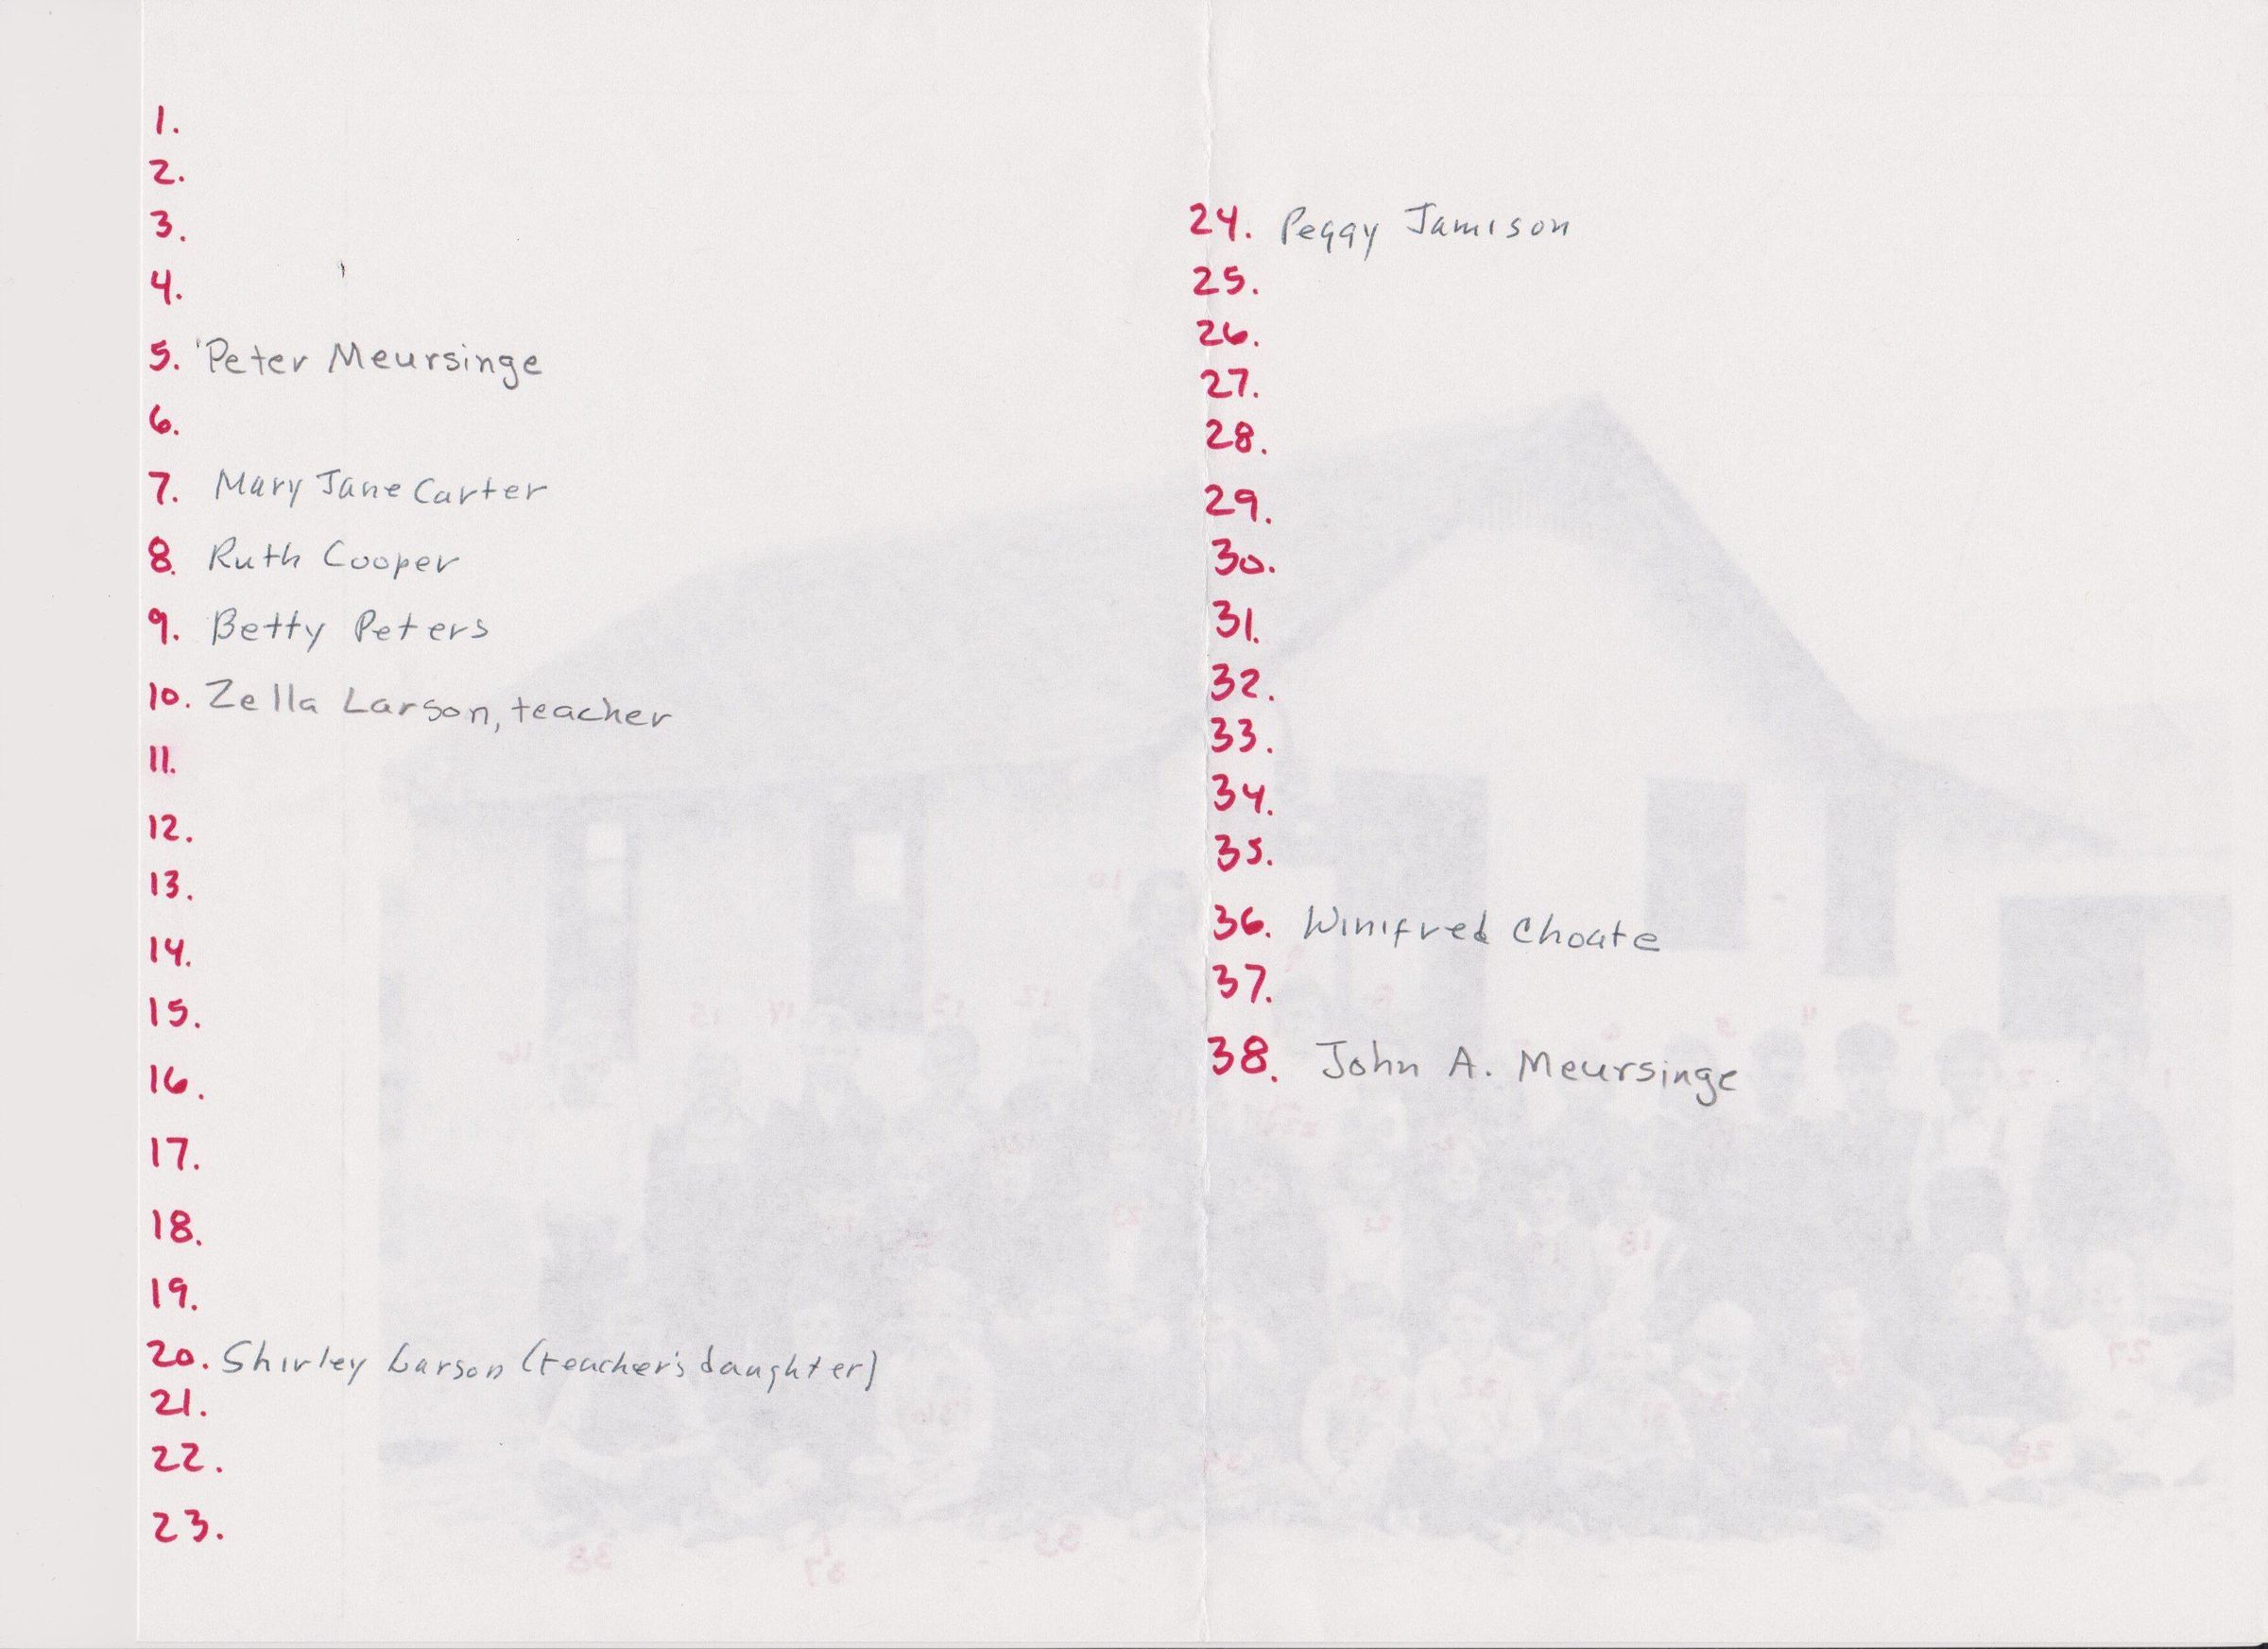 1.
2.
3.
4.
5. Peter Meursinge
6.
7. Mary Jane Carter
8. Ruth Cooper
9. Betty Peters
10. Zella Larson, teacher
11.
12.
13.
14.
15.
16.
17.
18.
19.
20. Shirley Larson (teacher's daughter)
21.
22.
23.
24. Peggy Jamison
25.
26.
27.
28.
29.
30.
31.
32.
33.
34.
35.
36. Winifred Choate
37.
38. John A. Meursinge